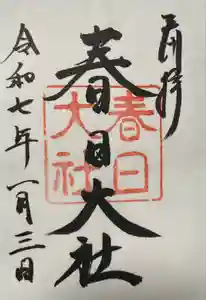 奉拝
春日大社
春日大社
令和七年一月三日